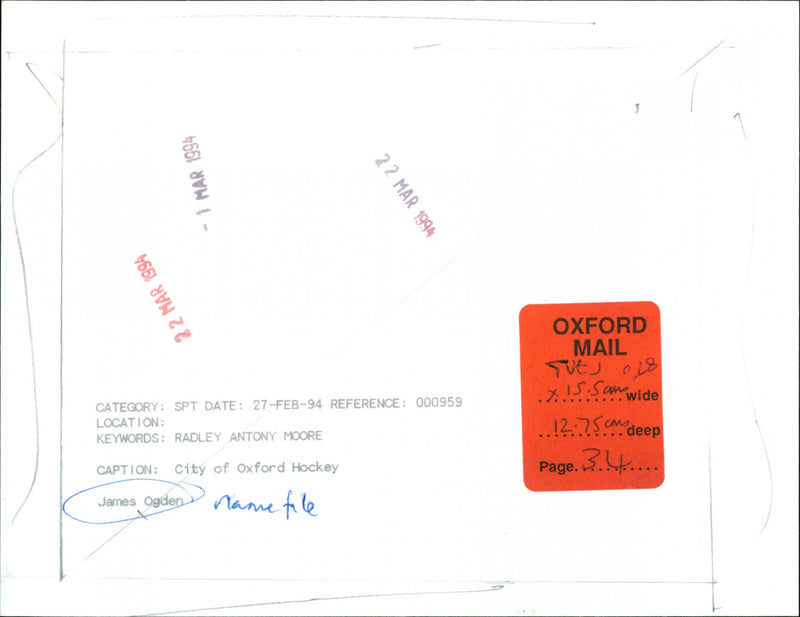 - 1 MAR 1994
22 MAR 1994
22 MAR 1994
OXFORD
MAIL
TUES
x 15.5cms wide
12.75cms deep
Page 34
CATEGORY: SPT DATE: 27-FEB-94 REFERENCE: 000959
LOCATION:
KEYWORDS: RADLEY ANTONY MOORE
CAPTION: City of Oxford Hockey
James Ogden name file